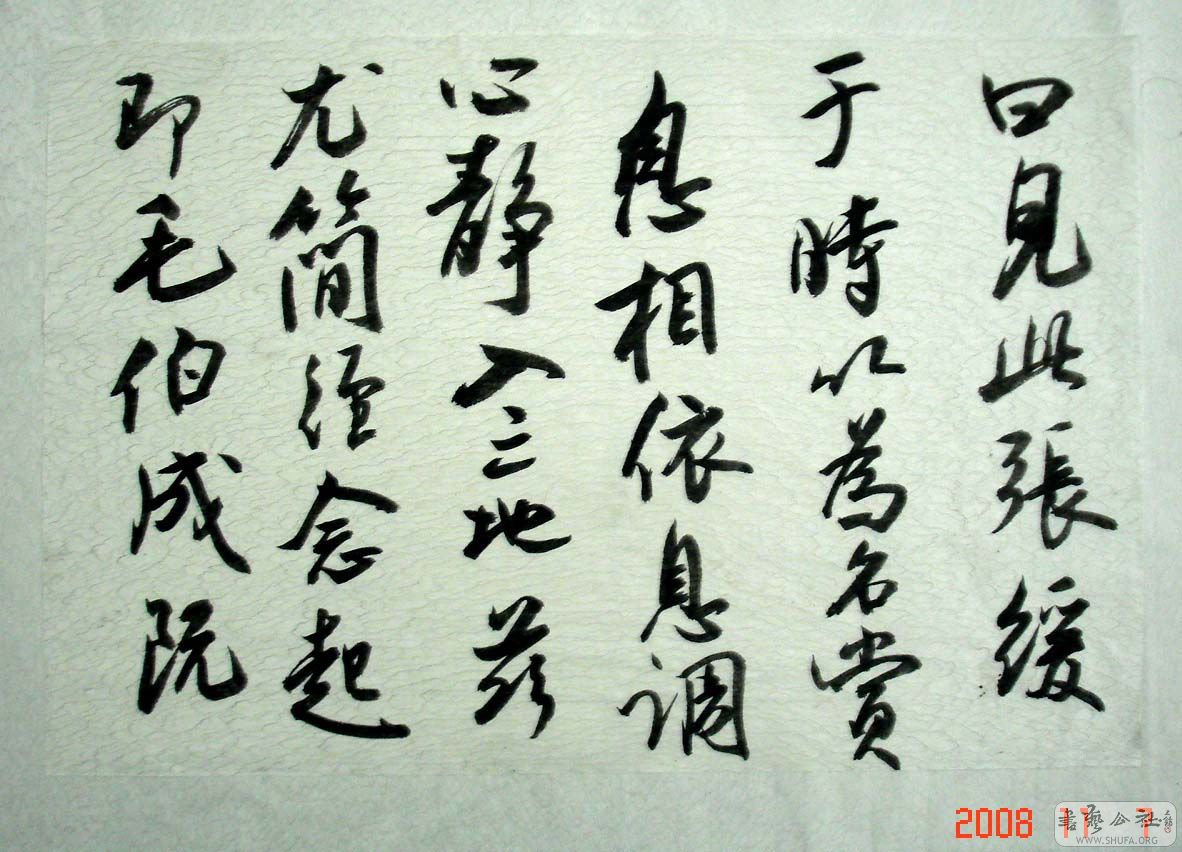 曰見此張緩
于時以為名賞
息相依息調
心静入三地茲
尤簡經念起
即毛伯成阮
2008 11 7
書藝公社
WWW.SHUFA.ORG